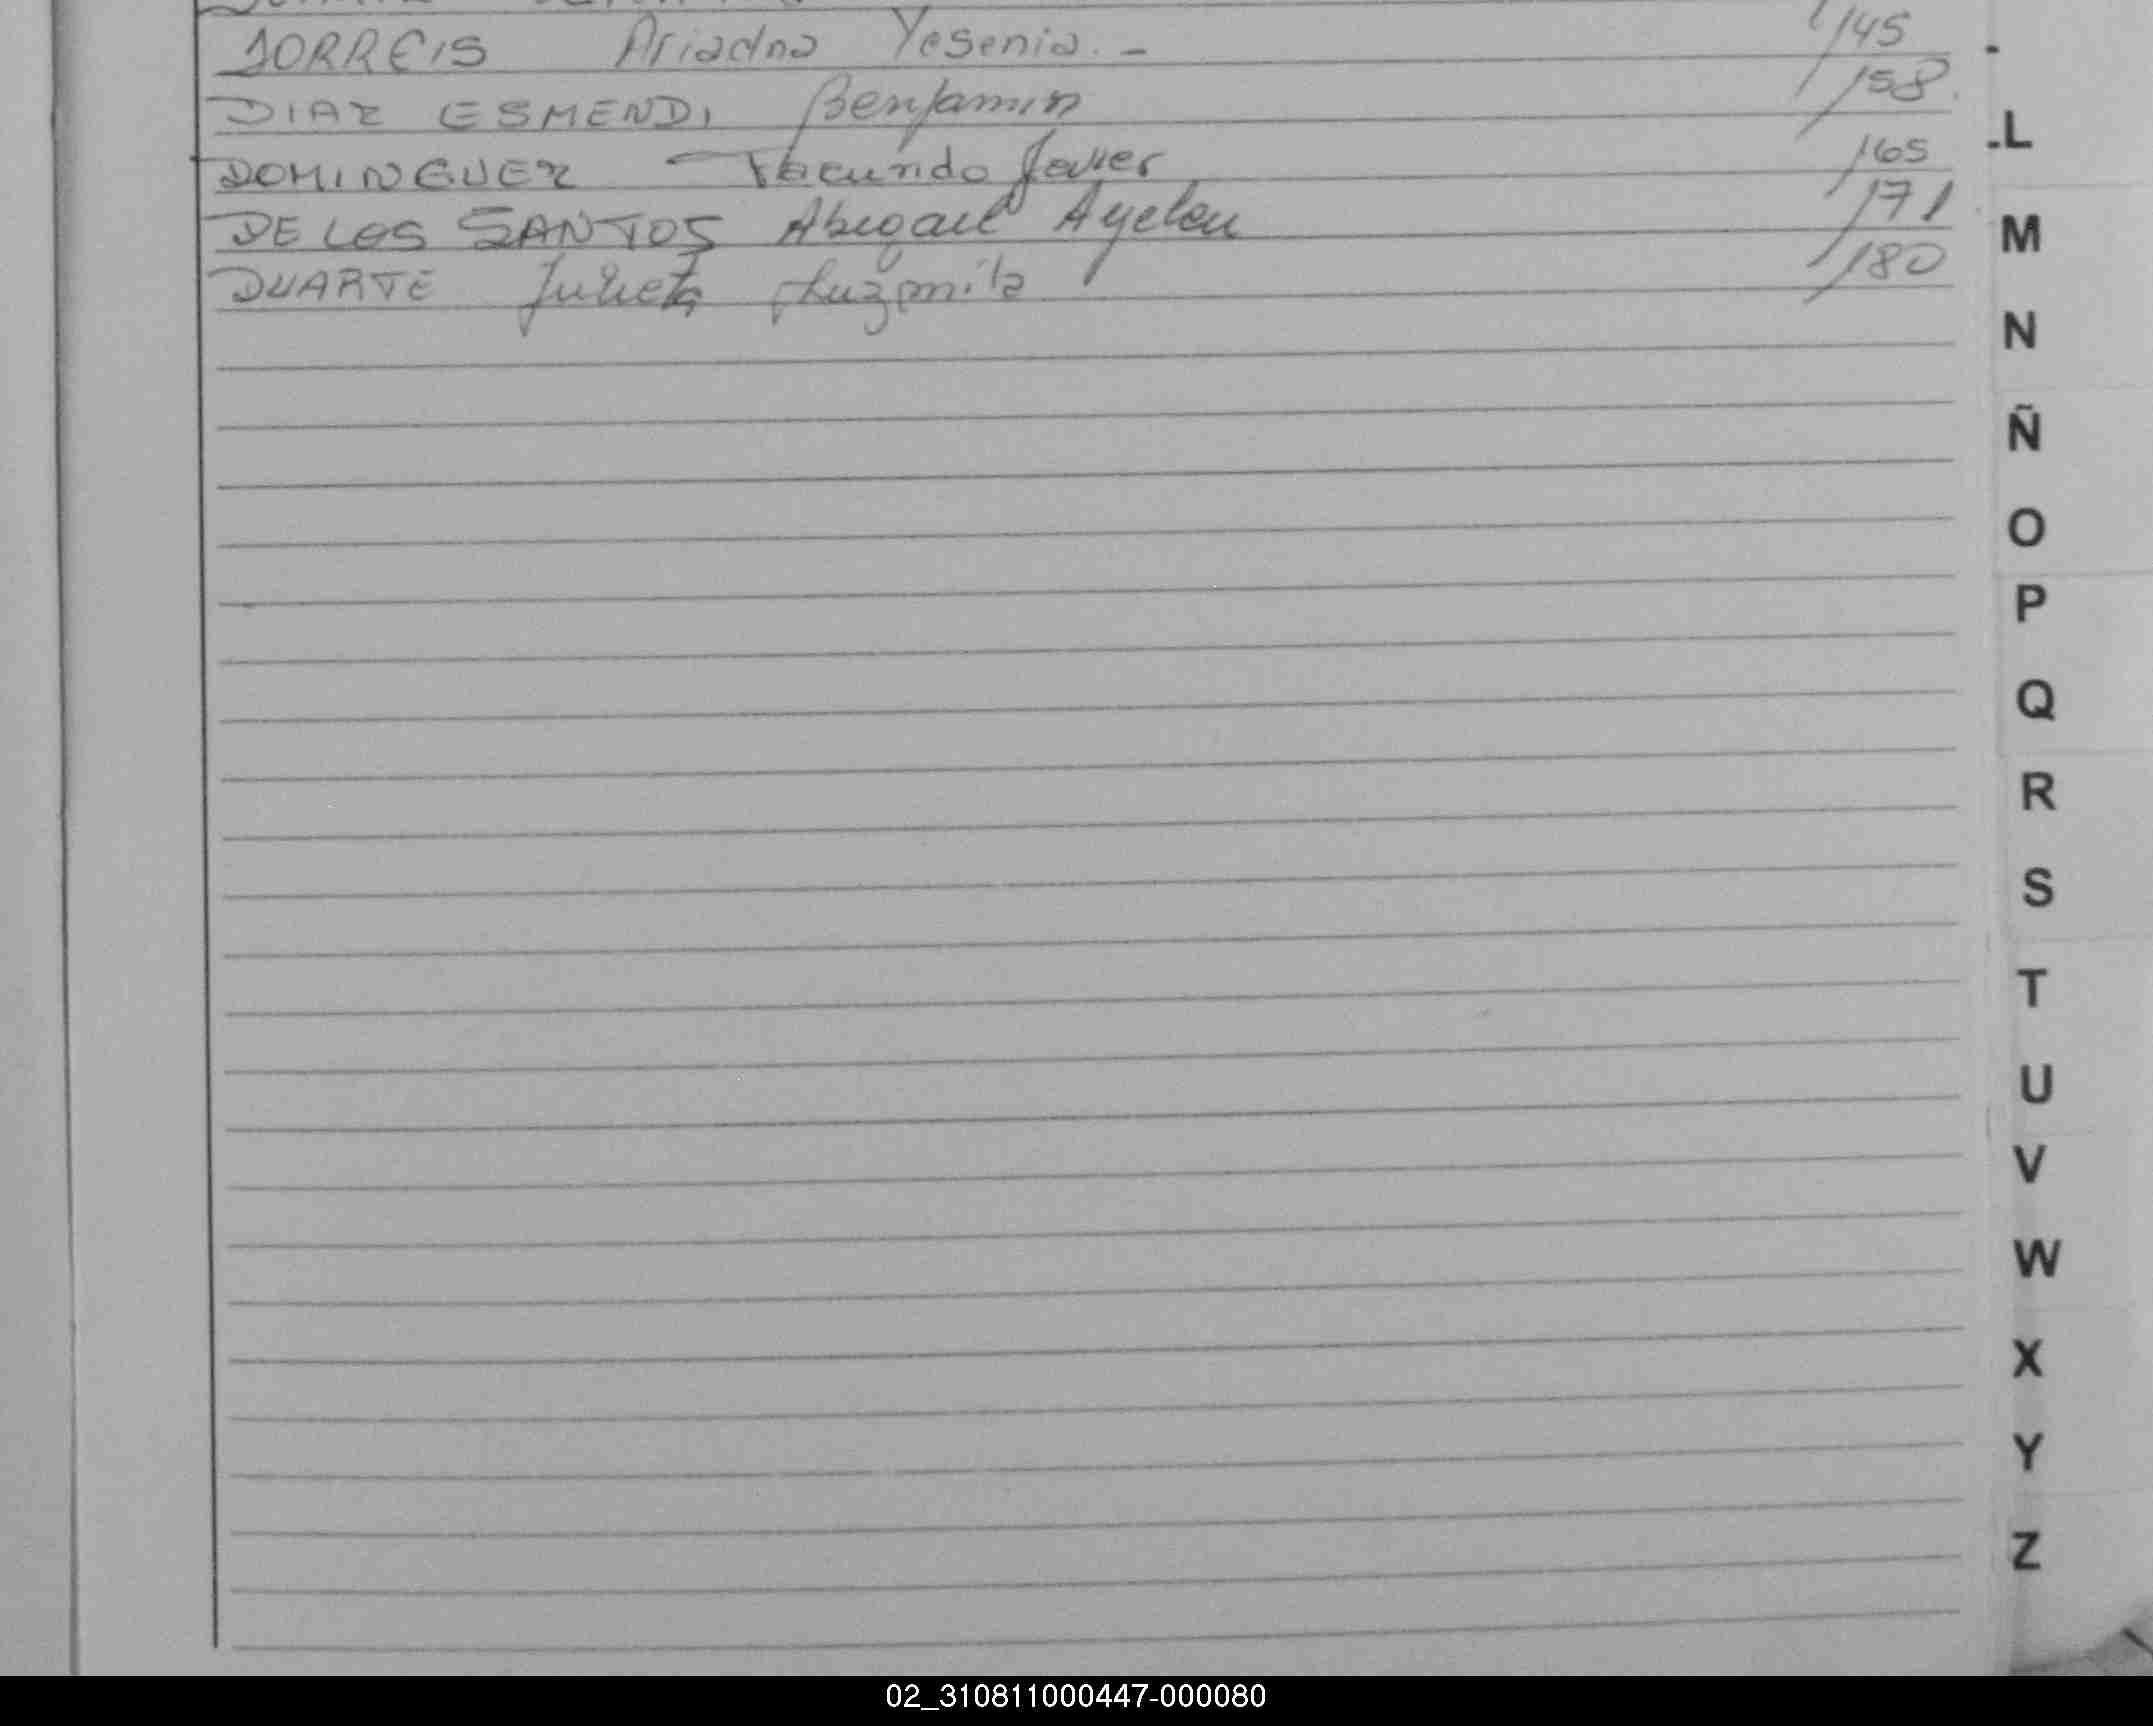 JORREIS Ariadna Yesenia.- 145
DIAZ ESMENDI Benjamin 158.
DOMINGUEZ Facundo Javier 165
DE LOS SANTOS Abigail Ayelen 171
DUARTE Julieta Luzmila 180
L
M
N
Ñ
O
P
Q
R
S
T
U
V
W
X
Y
Z
02_310811000447-000080